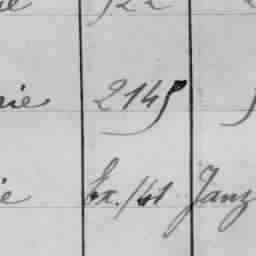 922
rie 2145
ie Ex./41 Janz